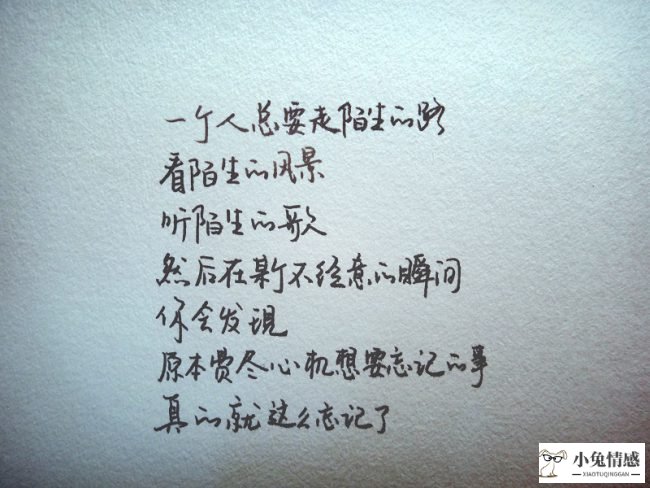 一个人总要走陌生的路
看陌生的风景
听陌生的歌
然后在某个不经意的瞬间
你会发现
原本费尽心机想要忘记的事
真的就这么忘记了
小兔情感
XIAOTUQINGGAN